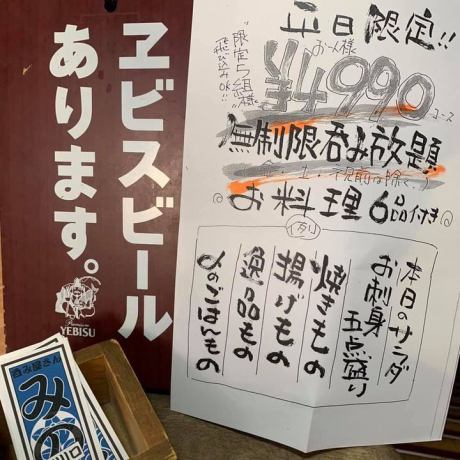 ヱビスビール
あります。
Premium
YEBISU
平日限定!!
お一人様
"限定5組様"
飛び込みOK!!
¥4990
コース
無制限呑み放題
お料理6品付き
(例)
本日のサラダ
お刺身五点盛り
焼きもの
揚げもの
逸品もの
〆のごはんもの
呑み屋さん
みの